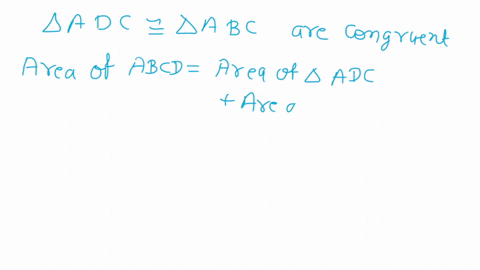 △ADC ≅ △ABC are congruent
Area of ABCD = Area of △ ADC
+ Are o